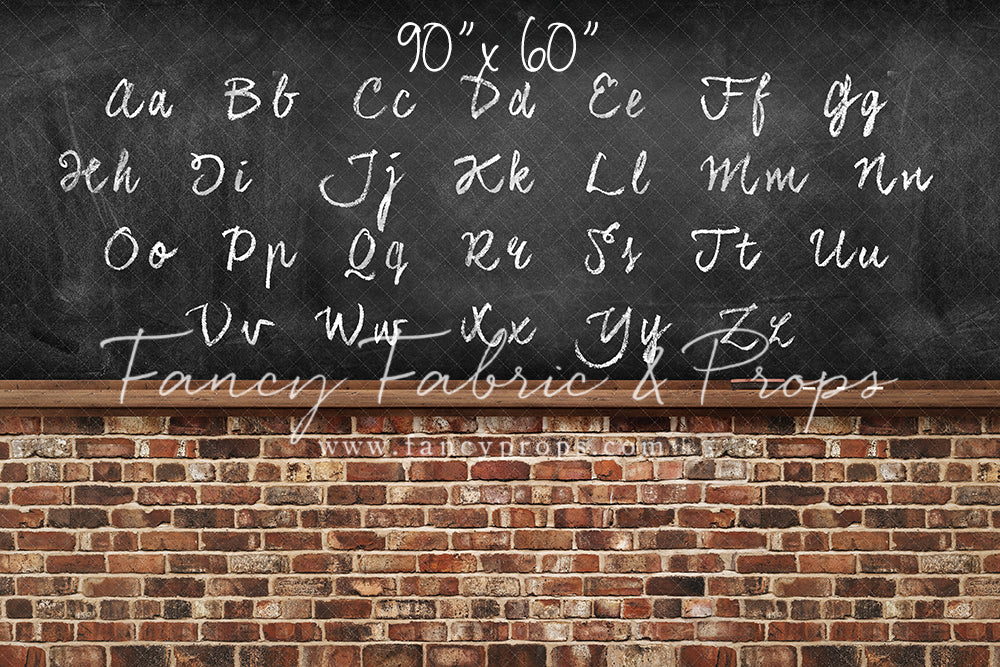 90" x 60"
Aa Bb Cc Dd Ee Ff Gg
Hh Ii Jj Kk Ll Mm Nn
Oo Pp Qq Rr Ss Tt Uu
Vv Ww Xx Yy Zz
Fancy Fabric & Props
www.fancyprops.com